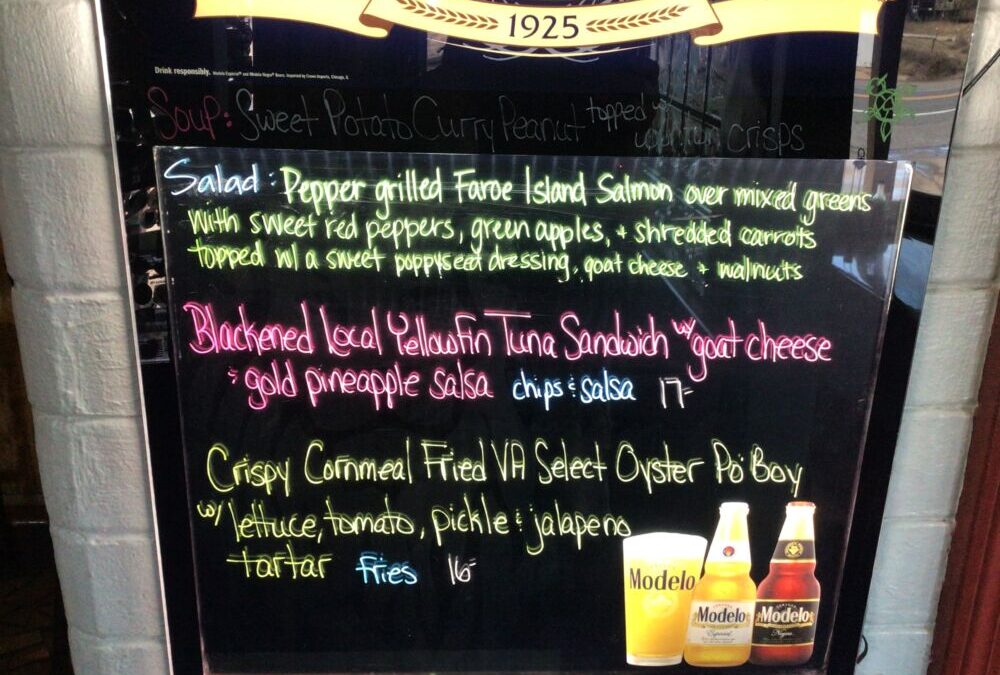 1925
Drink responsibly. Modelo Especial® and Modelo Negra® Beers. Imported by Crown Imports, Chicago, IL
Soup: Sweet Potato Curry Peanut topped w/
wonton crisps
Salad: Pepper grilled Faroe Island Salmon over mixed greens
with sweet red peppers, green apples, + shredded carrots
topped w/ a sweet poppyseed dressing, goat cheese + walnuts
Blackened Local Yellowfin Tuna Sandwich w/ goat cheese
& gold pineapple salsa chips & salsa 17-
Crispy Cornmeal Fried VA Select Oyster Po' Boy
w/ lettuce, tomato, pickle & jalapeno
tartar fries 16-
Modelo
Modelo
Especial
Modelo
Negra